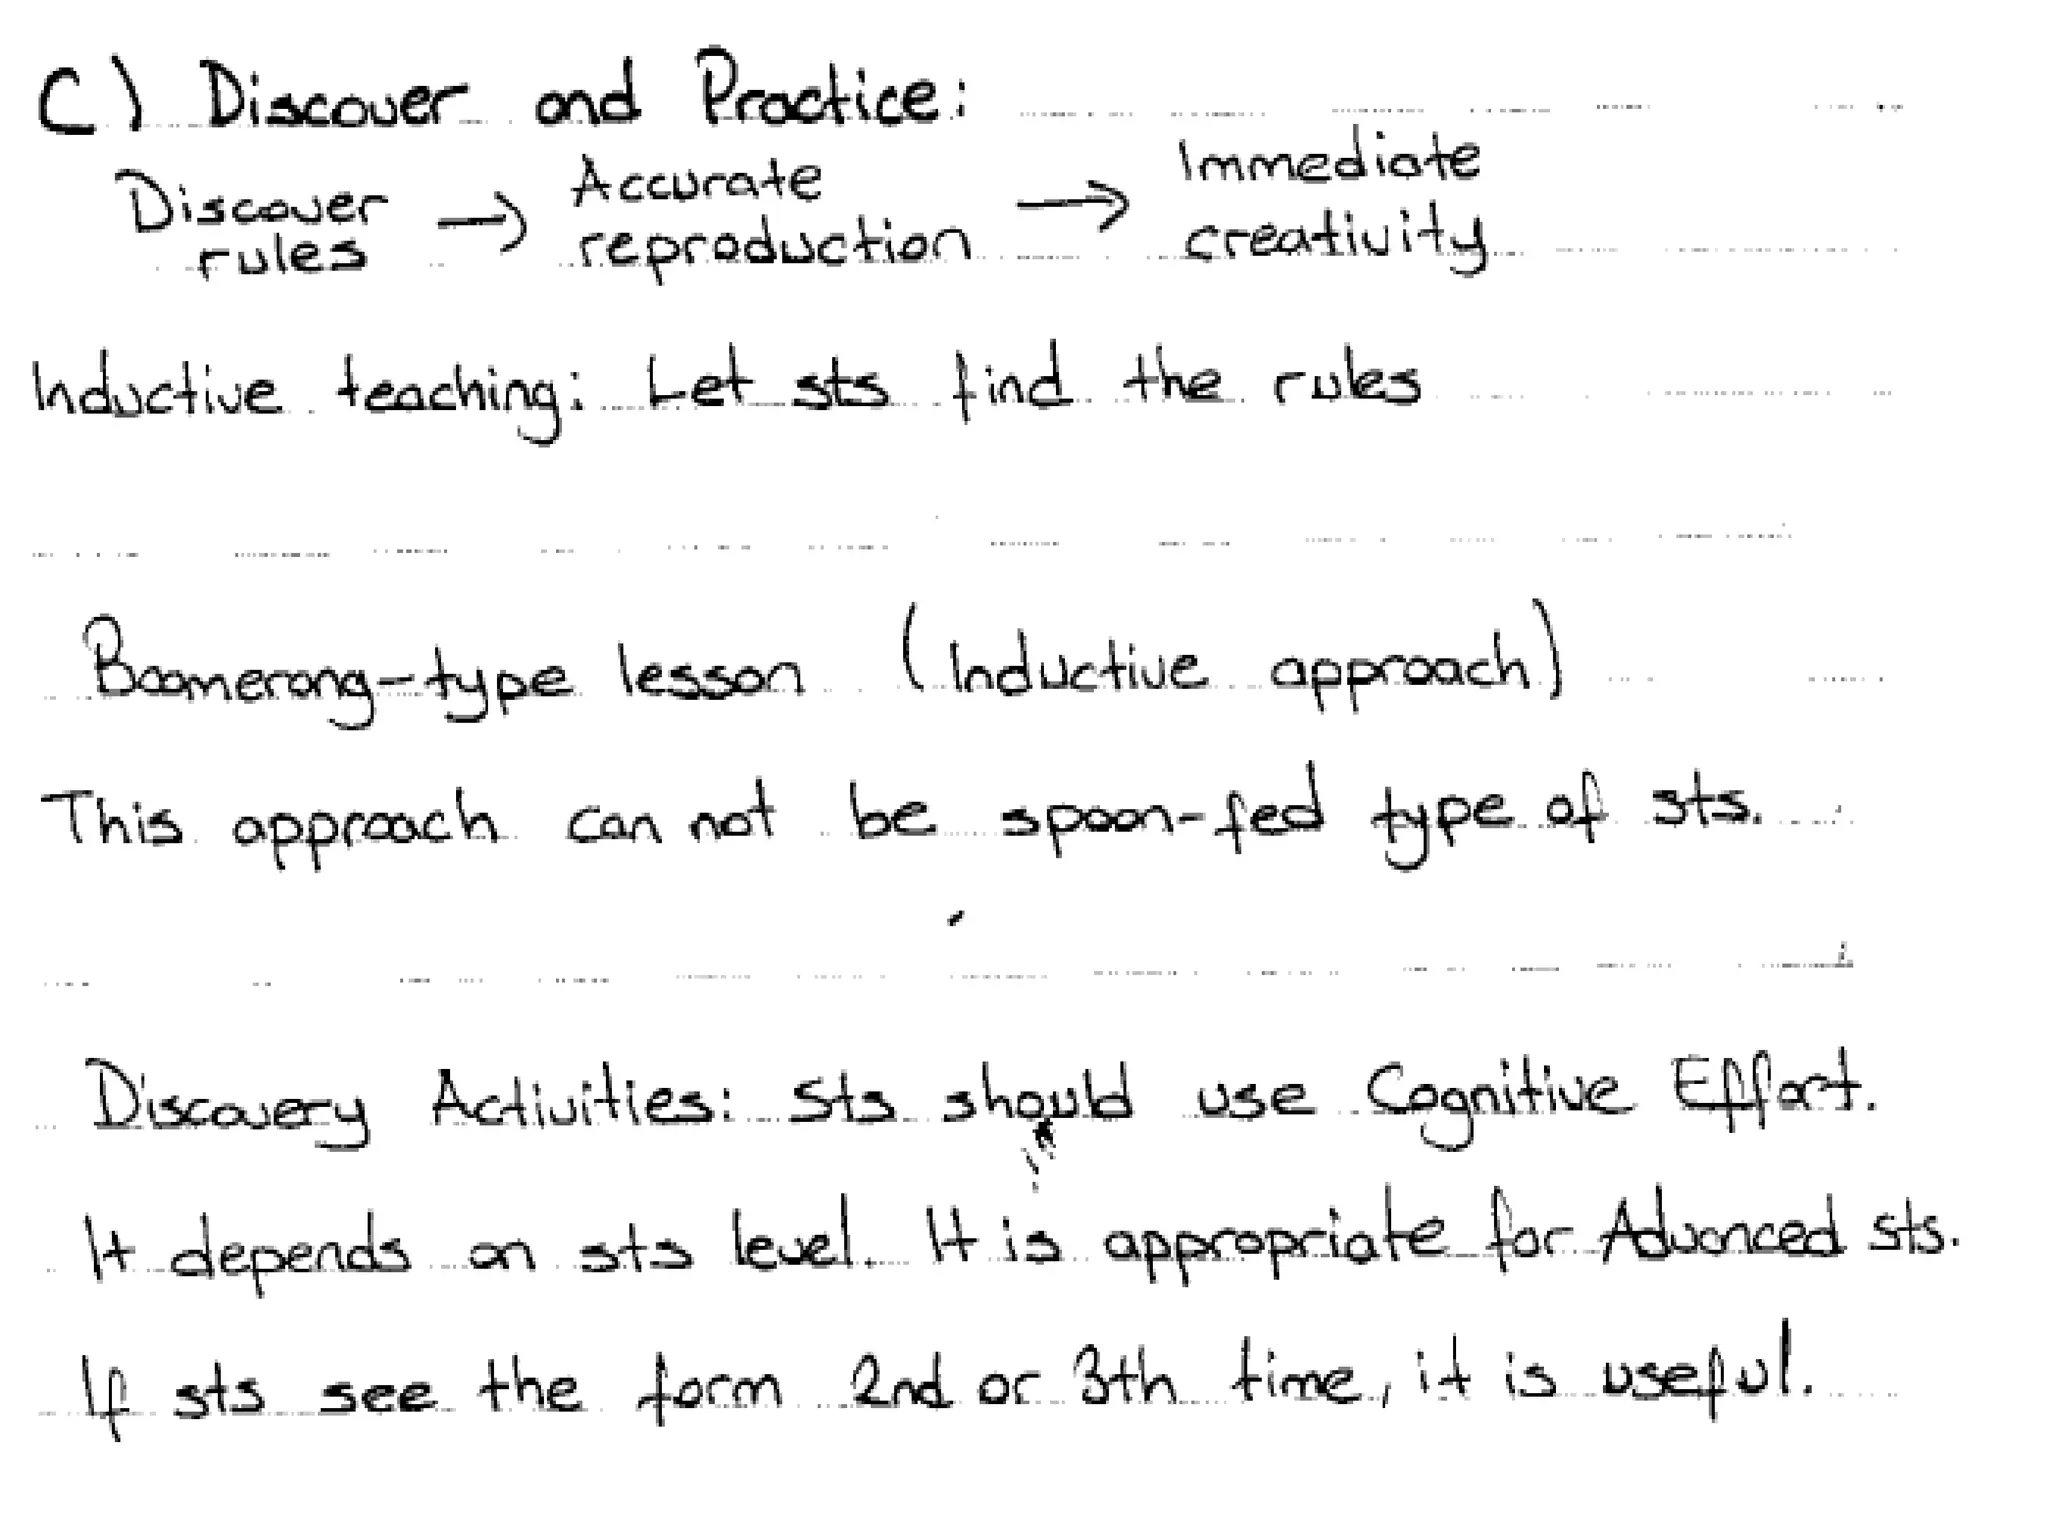 C) Discover and Practice:
Discover rules → Accurate reproduction → Immediate creativity
Inductive teaching: Let sts find the rules
Boomerang-type lesson (Inductive approach)
This approach can not be spoon-fed type of sts.
Discovery Activities: Sts should use Cognitive Effort.
It depends on sts level. It is appropriate for Advanced sts.
If sts see the form 2nd or 3th time, it is useful.